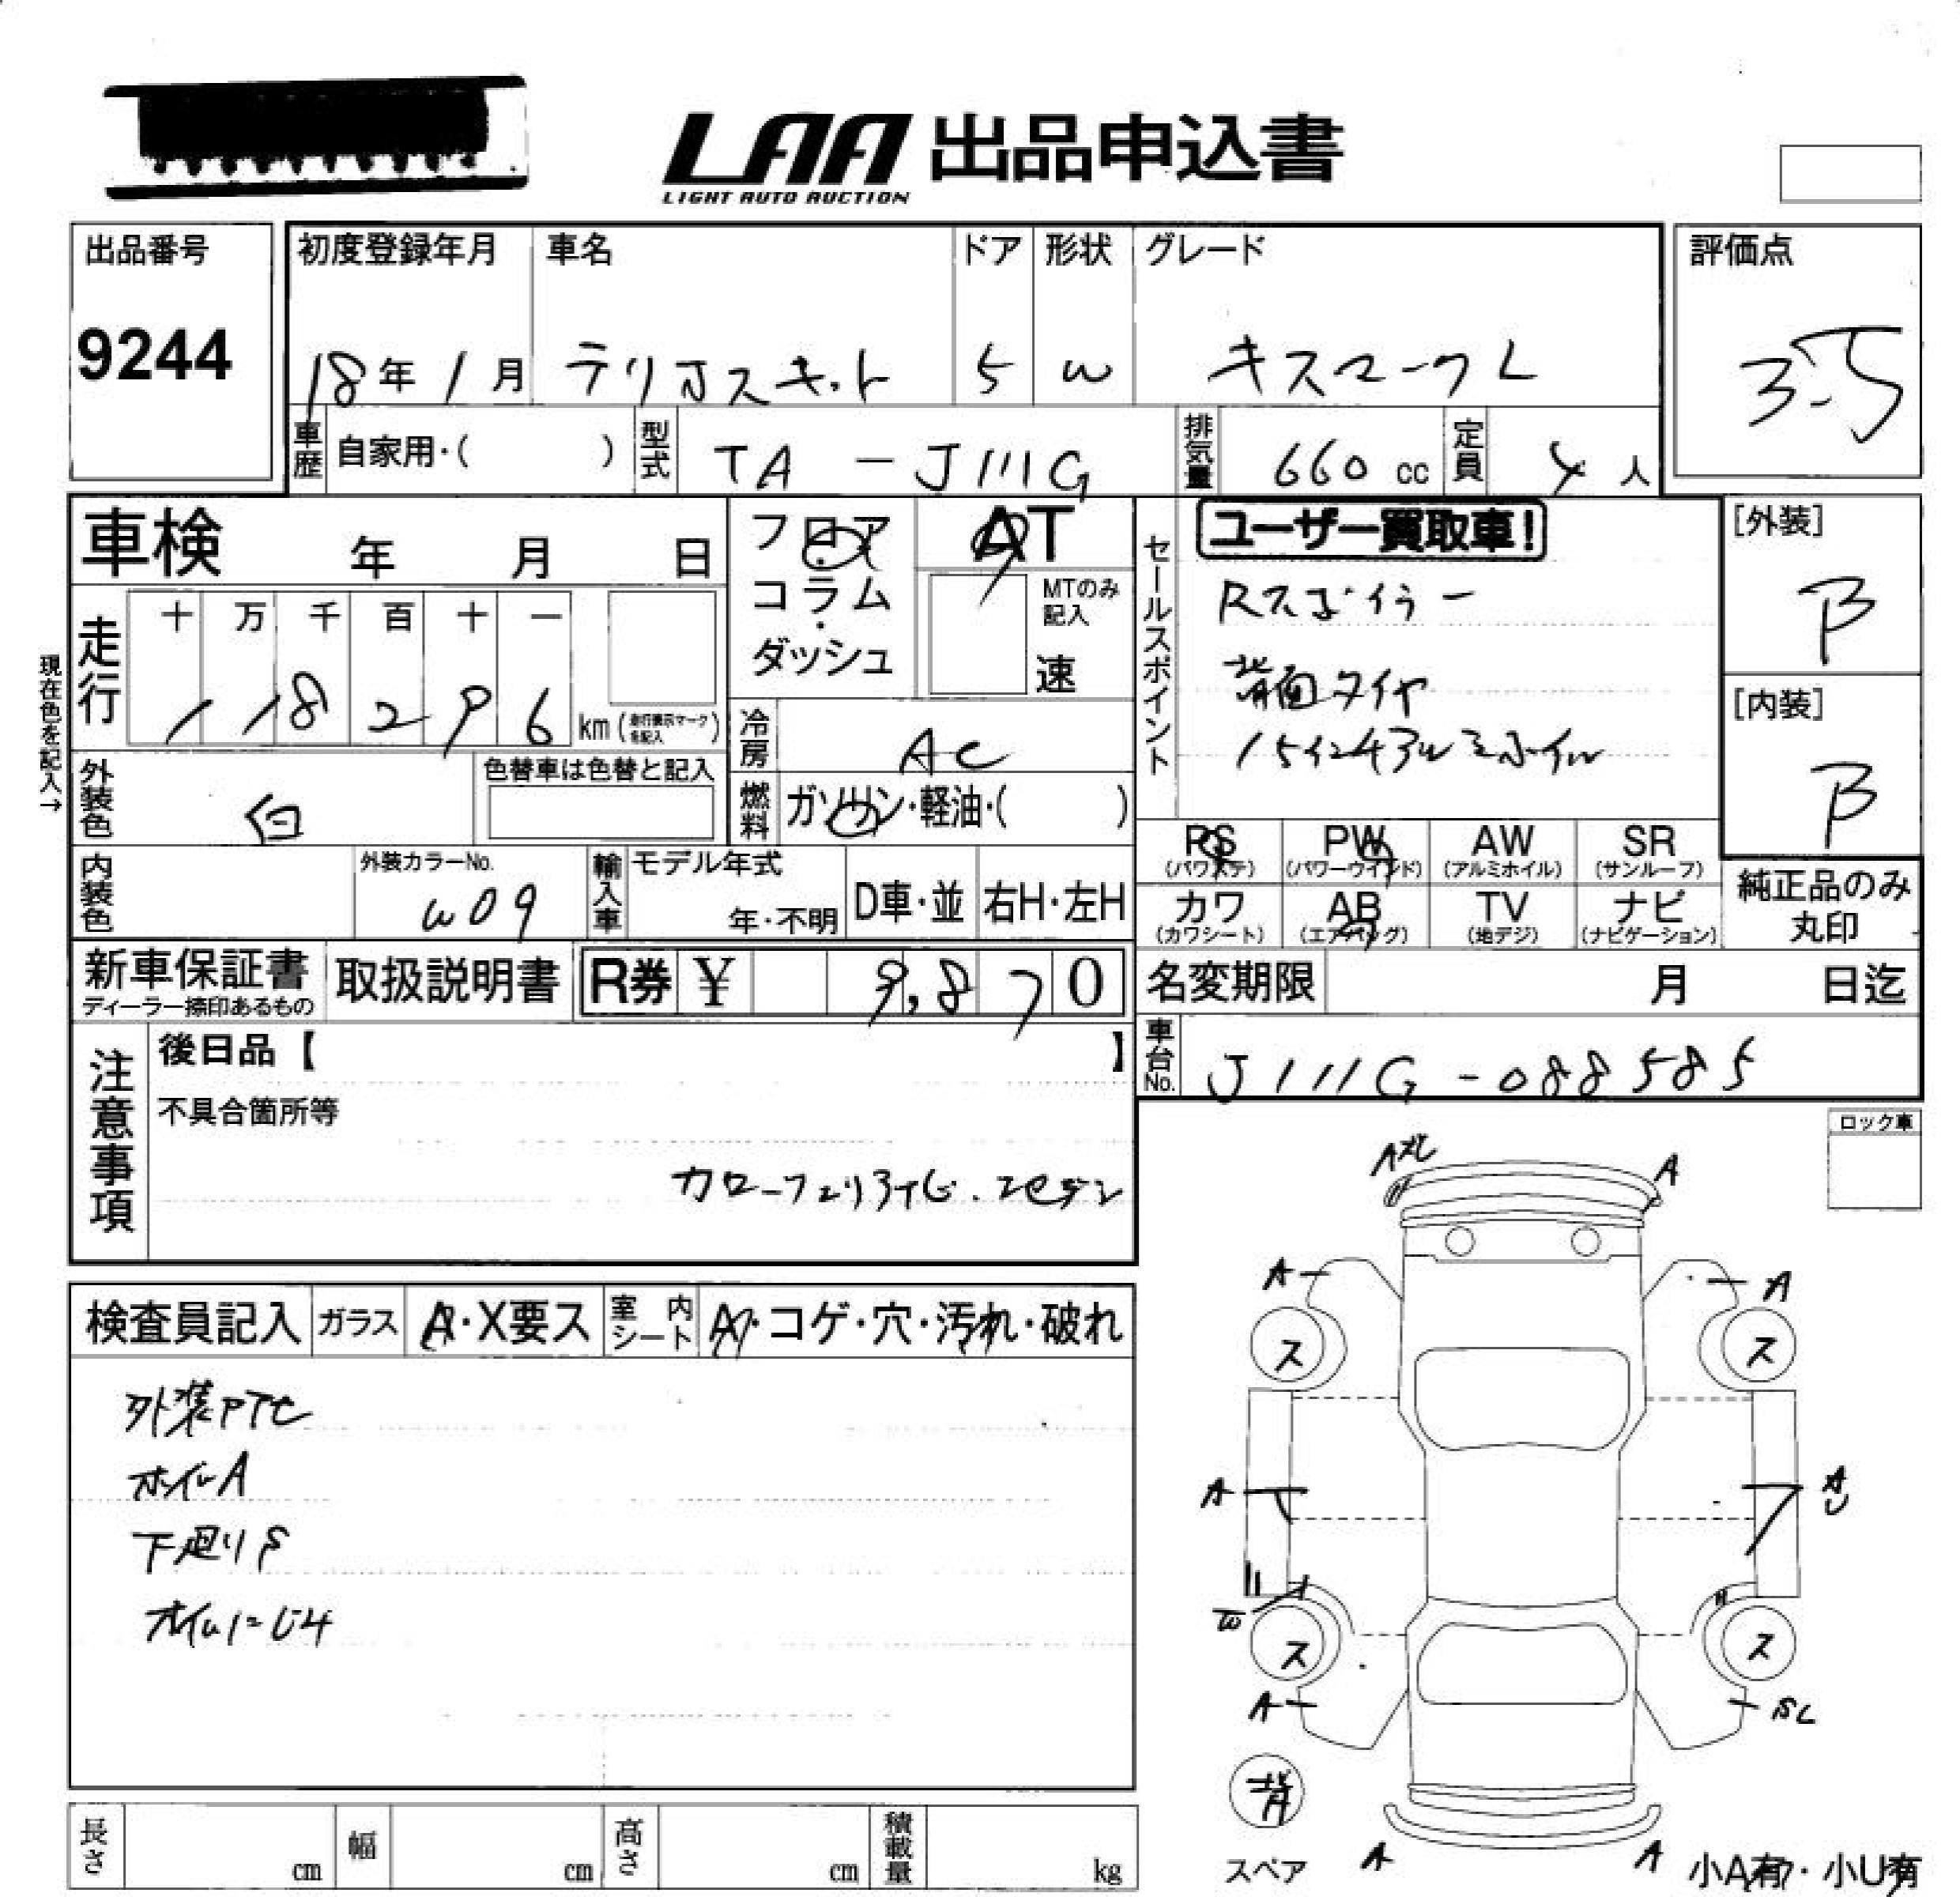 LAA 出品申込書
LIGHT AUTO AUCTION
出品番号 初度登録年月 車名 ドア 形状 グレード 評価点
9244 18年 1月 テリオスキッド 5 W キスマークL 3.5
車歴 自家用・( ) 型式 TA-J111G 排気量 660 cc 定員 4 人
車検 年 月 日 フロア・コラム・ダッシュ AT セールスポイント ユーザー買取車! [外装]
MTのみ記入
速
Rスポイラー
B
現在色を記入→
走行 十 万 千 百 十 一
1 1 8 2 9 6 km (走行表示マークを記入)
背面タイヤ
[内装]
冷房 AC
15インチアルミホイル
B
外装色 白 色替車は色替と記入
燃料 ガソリン・軽油・( )
PS PW AW SR
(パワステ) (パワーウインド) (アルミホイル) (サンルーフ)
内装色 外装カラーNo. W09 輸入車 モデル年式 年・不明 D車・並 右H・左H
カワ AB TV ナビ 純正品のみ
(カワシート) (エアバッグ) (地デジ) (ナビゲーション) 丸印
新車保証書 取扱説明書 R券 ¥ 9,870 名変期限 月 日迄
ディーラー捺印あるもの
車台No. J111G-088585
注意事項 後日品【 】
不具合箇所等
ロック車
A A
A A
検査員記入 ガラス A・X要ス 室内シート A・コゲ・穴・汚れ・破れ
ス ス
外装PTセ
ホイルA
A A U
下廻りS
W
オイルにじみ
ス ス
A SL
背
スペア A A 小A有・小U有
長さ cm 幅 cm 高さ cm 積載量 kg